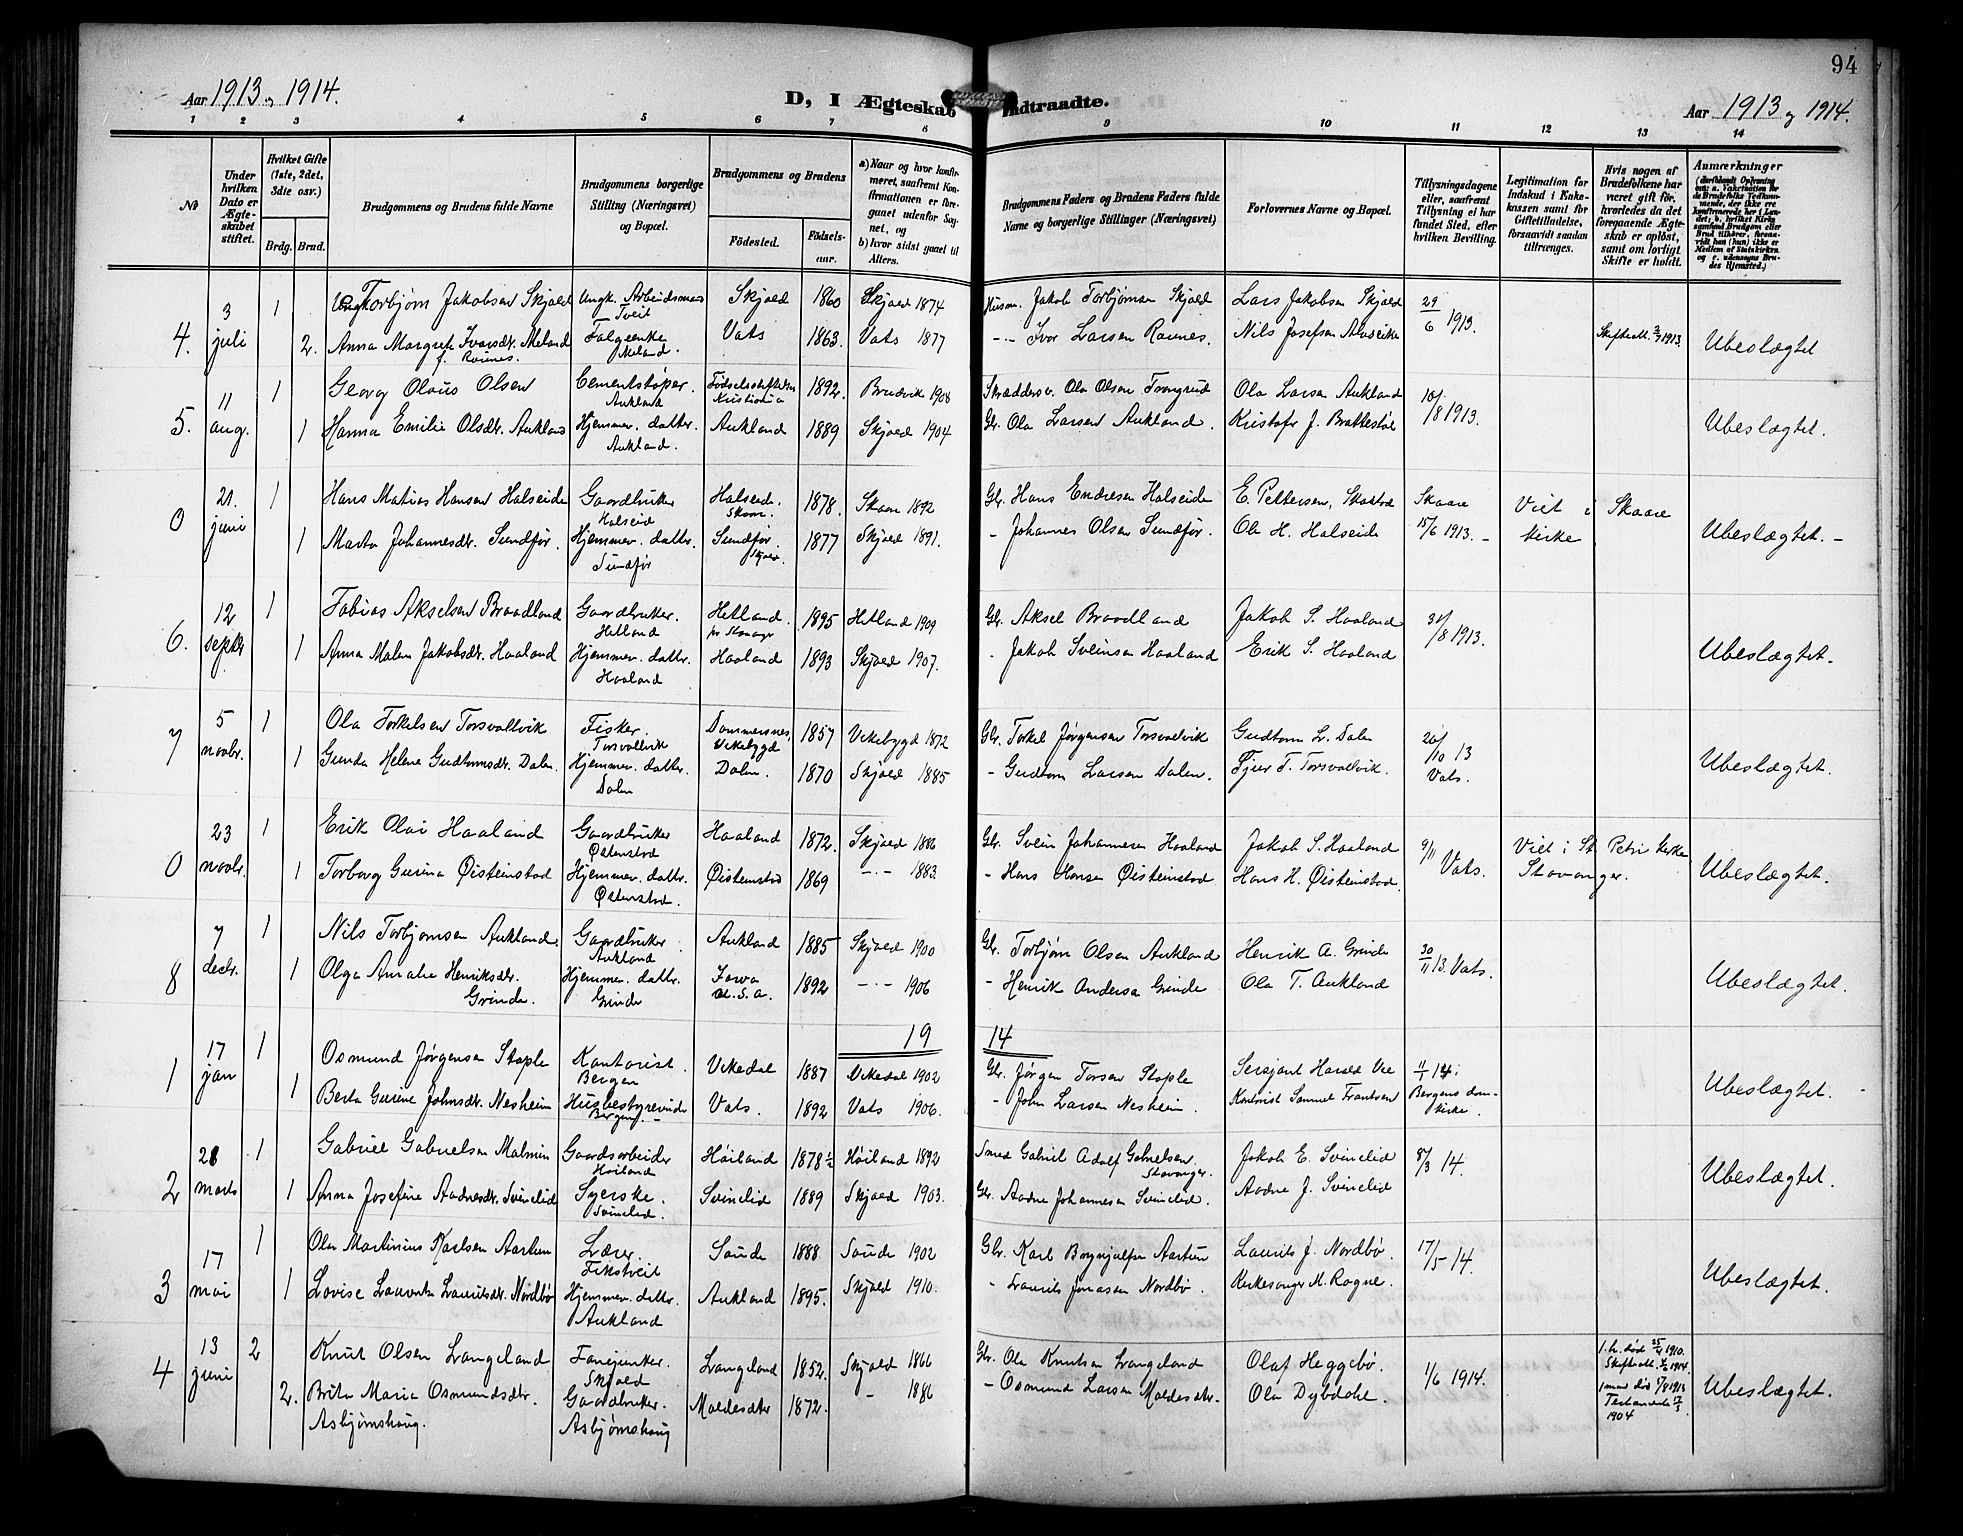 94
Aar 1913 og 1914.
D, I Ægteskab Indtraadte.
Aar 1913 og 1914.
1 2 3 4 5 6 7 8 9 10 11 12 13 14
No
Under hvilken Dato er Ægteskabet stiftet.
Hvilket Gifte (1ste, 2det, 3die osv.)
Brdg. Brud.
Brudgommens og Brudens fulde Navne
Brudgommens borgerlige Stilling (Næringsvei) og Bopæl.
Brudgommens og Brudens
Fødested.
Fødsels-aar.
a) Naar og hvor konfirmeret, saafremt Konfirmationen er foregaaet udenfor Sognet, og
b) hvor sidst gaaet til Alters.
Brudgommens Faders og Brudens Faders fulde Navne og borgerlige Stillinger (Næringsvei)
Forlovernes Navne og Bopæl.
Tillysningsdagene eller, saafremt Tillysning ei har fundet Sted, efter hvilken Bevilling.
Legitimation for Indskud i Enkekassen samt for Giftetilladelse, forsaavidt saadan tiltrænges.
Hvis nogen af Brudefolkene har været gift før, hvorledes da det foregaaende Ægteskab er opløst, samt om lovligt Skifte er holdt.
Anmærkninger
4. 3 juli 1 Torbjørn Jakobsen Skjold Ungk. Arbeidsmand Tveit Skjold 1860 Skjold 1874 Husm. Jakob Torbjørnsen Skjold Lars Jakobsen Skjold 29/6 1913.
2. Anna Margrete Ivarsdr. Meland f. Raunes. Meland. Vats 1863. Vats 1877 -"- Ivar Larsen Raunes. Nils Josefsen Alvseike Skifteatt. 1913. Ubeslægtet
5. 11 aug. 1 Georg Olaus Olsen Cementstøper. Aukland Fødselsstiftelsen Kristiania 1892. Bruvik 1908 Skrædders. Ola Olsen Ola Larsen Aukland 10/8 1913.
1 Hanna Emilie Olsdr. Aukland Hjemmev. datter. Aukland. Aukland 1889 Skjold 1904 Gbr. Ola Larsen Aukland. Kristofer J. Brattestøl Ubeslægtet.
0 21. juni 1 Hans Matias Hansen Halseide Gaardbruker Halseid Halseide Skaare. 1878. Skaare 1892 Gbr. Hans Endresen Halseide E. Pettersen, Skaare 15/6 1913. - Viet i Skaare kirke
1 Marta Johannesdr. Sundfør. Hjemmev. datter. Sundfør Sundfør. Skjold 1877 Skjold 1891. - Johannes Olsen Sundfør. Ola H. Halseide Ubeslægtet. -
6. 12 septbr 1 Tobias Akselsen Braadland Gaardbruker. Hetland Hetland pr Stavanger 1895 Hetland 1909 Gbr. Aksel Braadland Jakob S. Haaland 31/8 1913.
1 Anna Malene Jakobsdr. Haaland Hjemmev. datter. Haaland Haaland 1893 Skjold 1907. - Jakob Sveinsen Haaland Erik S. Haaland Ubeslægtet.
7 5 novbr. 1 Ola Torkelsen Torsvallvik Fisker. Torsvallvik Dommersnes, Vikebygd 1857 Vikebygd 1872 Gbr. Torkel Jørgensen Torsvallvik Gudtorm L. Dalen 20/10 13 Vats.
1 Gunda Helene Gudtormsdr. Dalen. Hjemmev. datter. Dalen Dalen. 1870 Skjold 1885 - Gudtorm Larsen Dalen. T. Torsvallvik. Ubeslægtet.
0 23 novbr. 1 Erik Olai Haaland Gaardbruker Østenstad Haaland 1872. Skjold 1886 Gbr. Svein Johannesen Haaland Jakob S. Haaland 9/11 Vats. Viet i St Petri kirke Stavanger.
1 Torborg Gurina Øisteinstad Hjemmev. datter. Østenstad. Øisteinstad 1869 -"- 1883. - Hans Hansen Øisteinstad Hans H. Øisteinstad. Ubeslægtet.
8 7 decbr. 1 Nils Torbjørnsen Aukland. Gaardbruker. Aukland Aukland 1885 Skjold 1900 Gbr. Torbjørn Olsen Aukland Henrik A. Grinde 30/11 13. Vats.
1 Olga Amalie Henriksdr. Grinde. Hjemmev. datter. Grinde Iowa U.S.A. 1892 -"- 1906 - Henrik Andersen Grinde Ola T. Aukland Ubeslægtet.
19 14
1 17 jan 1 Osmund Jørgensen Stople Kontorist. Bergen Vikedal 1887 Vikedal 1902 Gbr. Jørgen Torsen Stople Sersjant Harald Vee 1/1 14. Bergens domkirke.
1 Berta Gurine Johnsdr. Nesheim Husbestyrerinde Bergen. - Vats. 1892 Vats 1906. - John Larsen Nesheim. Kontorist Samuel Frantsen Ubeslægtet.
2 28 marts 1 Gabriel Gabrielsen Malmin Gaardsarbeider Høiland Høiland 1878 Høiland 1892 Smed Gabriel Adolf Gabrielsen Stavanger. Jakob E. Svinelid 8/3 14.
1 Anna Josefine Aadnesdr. Svinelid Syerske. Svinelid. Svinelid 1889 Skjold 1903. Gbr. Aadne Johannesen Svinelid. Aadne J. Svinelid Ubeslægtet.
3 17 mai 1 Ola Martinius Karlsen Aartun Lærer. Saude 1888 Saude 1902 Gbr. Karl Brynjulfsen Aartun Laurits J. Nordbø. 17/5 14.
1 Lovise Lauritsdr. Nordbø Hjemmev. datter. Aukland Aukland 1895. Skjold 1910. - Laurits Jonassen Nordbø. Kirkesanger M. Rogne. Ubeslægtet.
4 13 juni 2 Knut Olsen Langeland Fanejunker. Skjold Langeland 1852. Skjold 1866 Gbr. Ola Knutsen Langeland Olaf Heggebø. 1/6 1914. 1. h. død 25/4 1910. Skifteatt. 1914.
2. Brita Maria Osmundsdtr. Asbjørnshaug. Gaardbruker. Asbjørnshaug Moldesæter 1872. - 1886 - Osmund Larsen Moldesæter. Ola Dybdahl. 1 mand død 1913 Testamente 1904 Ubeslægtet.